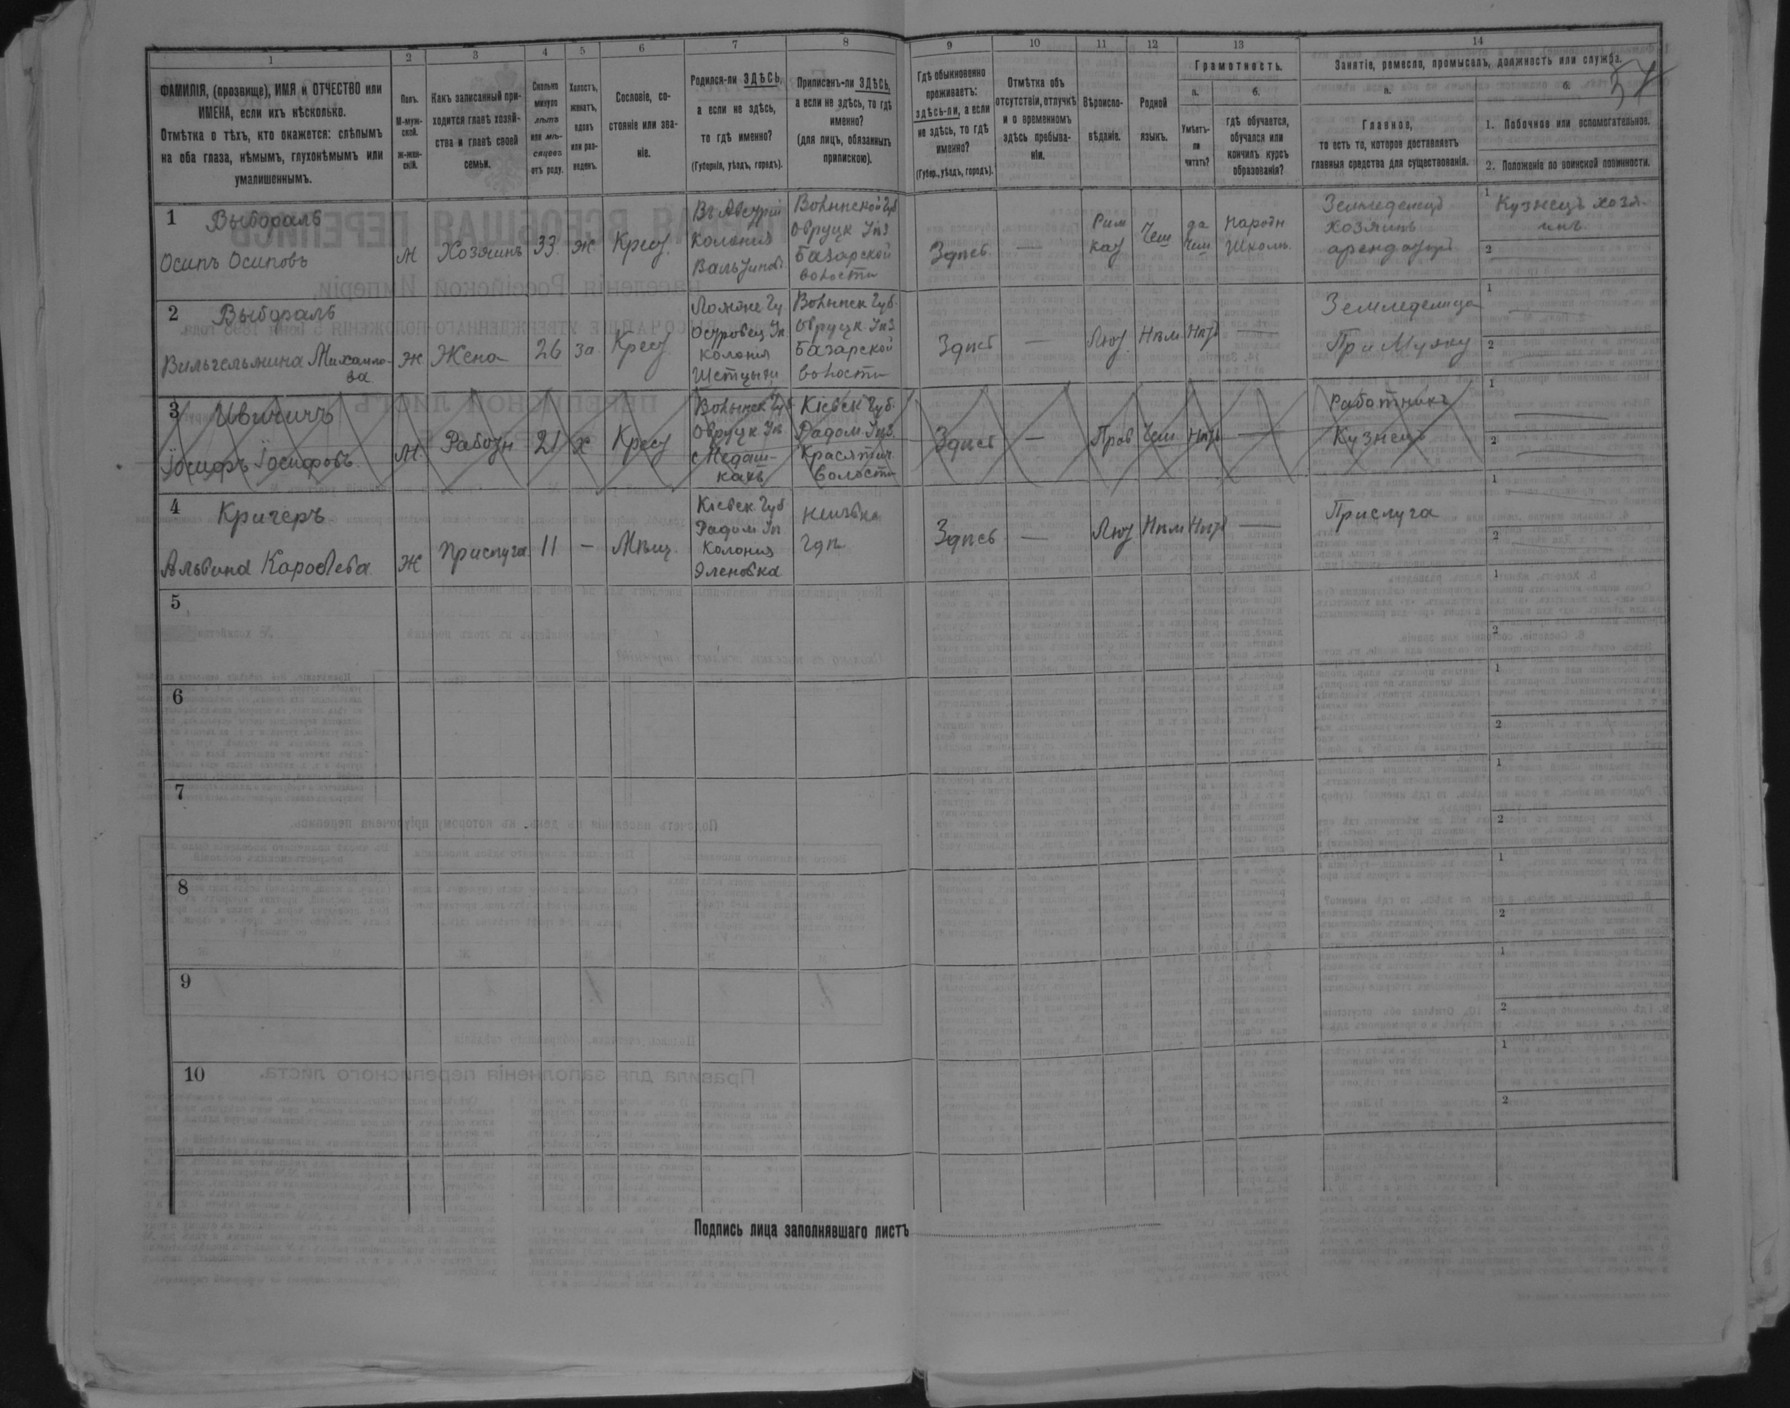 1 2 3 4 5 6 7 8 9 10 11 12 13 14
ФАМИЛІЯ, (прозвище), ИМЯ и ОТЧЕСТВО или
ИМЕНА, если ихъ нѣсколько.
Отмѣтка о тѣхъ, кто окажется: слѣпымъ
на оба глаза, нѣмымъ, глухонѣмымъ или
умалишеннымъ.
Полъ.
М-муж-
ской.
ж-жен-
скій.
Какъ записанный при-
ходится главѣ хозяй-
ства и главѣ своей
семьи.
Сколько
минуло
лѣтъ
или мѣ-
сяцевъ
отъ роду.
Холостъ,
женатъ,
вдовъ
или раз-
веденъ.
Сословіе, со-
стояніе или зва-
ніе.
Родился-ли ЗДѢСЬ,
а если не здѣсь,
то гдѣ именно?
(Губернія, уѣздъ, городъ).
Приписанъ-ли ЗДѢСЬ,
а если не здѣсь, то гдѣ
именно?
(для лицъ, обязанныхъ
припискою).
Гдѣ обыкновенно
проживаетъ:
здѣсь-ли, а если
не здѣсь, то гдѣ
именно?
(Губер., уѣздъ, городъ).
Отмѣтка объ
отсутствіи, отлучкѣ
и о временномъ
здѣсь пребыва-
ніи.
Вѣроиспо-
вѣданіе.
Родной
языкъ.
Грамотность.
а.
Умѣетъ-
ли
читать?
б.
гдѣ обучается,
обучался или
кончилъ курсъ
образованія?
Занятіе, ремесло, промыселъ, должность или служба.
а.
Главное,
то есть то, которое доставляетъ
главныя средства для существованія.
б.
57
1. Побочное или вспомогательное.
2. Положеніе по воинской повинности.
1 Выборалъ
Осипъ Осиповъ
М
Хозяинъ
33
Ж
Крест
Въ Австріи
Колонія
Волынской Губ
Овруцк Уѣз
Базарской
волости
Здѣсь
—
Рим
кат
Чеш
да
Чеш
Народн
Школѣ
Земледѣлецъ
хозяинъ
арендаторъ
1 Кузнецъ хозя-
инъ
2
2 Выборалъ
Вильгельмина Михайло-
ва
Ж
Жена
26
За
Крест
Островец Уѣ
Колонія
Волынск Губ.
Овруцк Уѣз.
Базарской
волости
Здѣсь
—
Лют
Нѣм
Нѣтъ
—
Земледелица
При Мужу
1
2
3 Ивичичъ
Іосифъ Іосифовъ
М
Работн
21
х
Крест
Волынск Губ
Овруцк Уѣ
с Недаш-
кахъ
Кіевск Губ.
Радом Уѣз.
Красятич.
волости
Здѣсь
—
Прав
Чеш
Нѣтъ
—
Работникъ
Кузнецъ
1
2
4 Кричеръ
Альвина Каролева
Ж
прислуга
11
—
Мѣщ.
Кіевск Губ
Радом Уѣ
Колонія
Эленовка
Здѣсь
—
Лют
Нѣм
Нѣтъ
—
Прислуга
1
2
5
1
2
6
1
2
7
1
2
8
1
2
9
1
2
10
1
2
Подпись лица заполнявшаго листъ